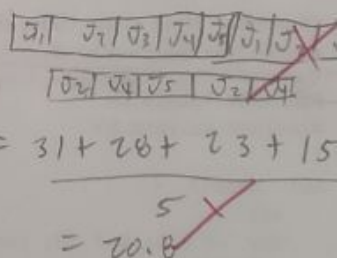 J1 J2 J3 J4 J5 J1 J
J2 J4 J5 J2 J4
= 31 + 28 + 23 + 15
5
= 20.8